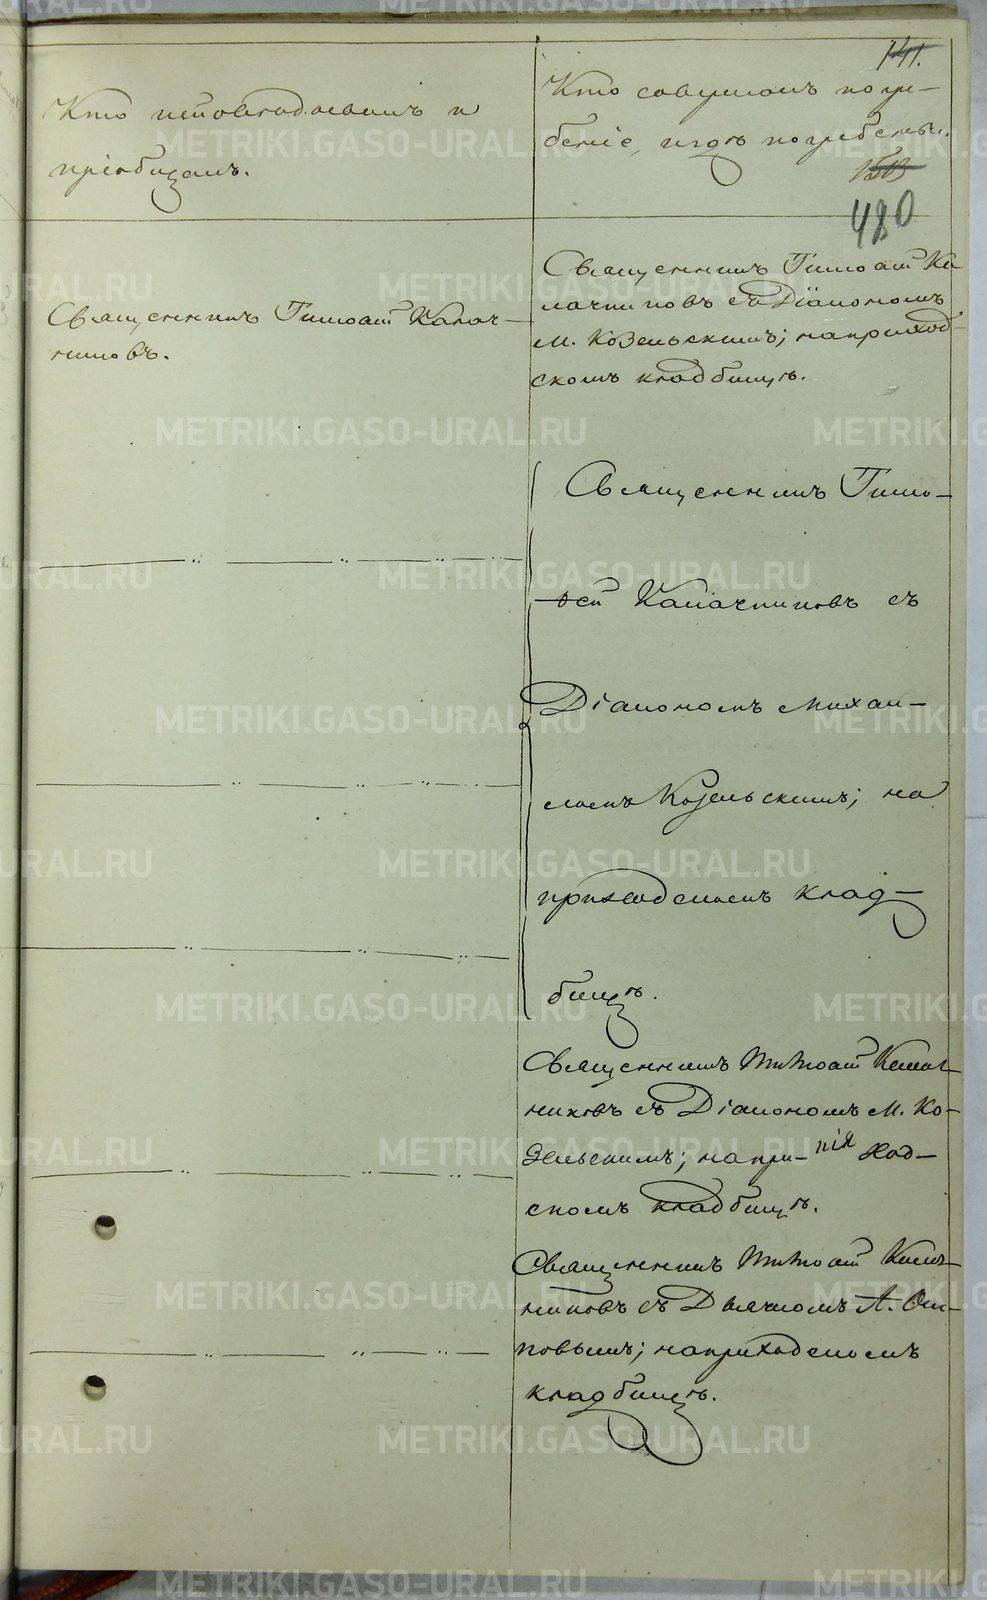 141.
Кто исповѣдовалъ и
пріобщалъ.
Кто совершалъ погре-
беніе, и гдѣ погребены.
480
Священникъ Тимоѳей Калач-
никовъ.
Священникъ Тимоѳей Ка
лачниковъ съ Діакономъ
М. Козельскимъ; на приход-
скомъ кладбищѣ.
Священникъ Тимо-
ѳей Калачниковъ съ
Діакономъ Михаи-
ломъ Козельскимъ; на
приходскомъ клад-
бищѣ.
Священникъ Тимоѳей Калач-
никовъ съ Діакономъ М. Ко-
зельскимъ; на при- ход-
скомъ кладбищѣ.
Священникъ Тимоѳей Калач-
никовъ съ Дьячкомъ А.
повымъ; на приходскомъ
кладбищѣ.
METRIKI.GASO-URAL.RU